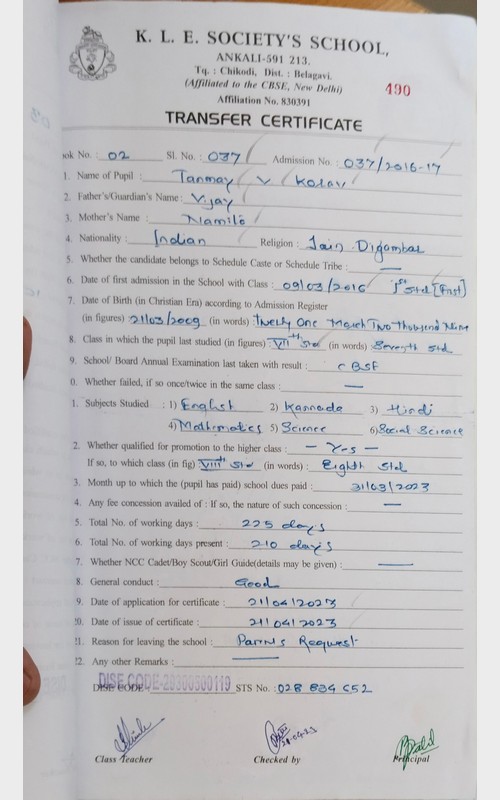 K. L. E. SOCIETY'S SCHOOL,
ANKALI-591 213.
Tq. : Chikodi, Dist. : Belagavi.
(Affiliated to the CBSE, New Delhi)
490
Affiliation No. 830391
TRANSFER CERTIFICATE
ok No. : 02 Sl. No. : 037 Admission No. : 037/2016-17
1. Name of Pupil : Tanmay V
2. Father's/Guardian's Name : Vijay
3. Mother's Name :
4. Nationality : Indian Religion : Jain Digambar
5. Whether the candidate belongs to Schedule Caste or Schedule Tribe : —
6. Date of first admission in the School with Class : 09/03/2016 Ist Std [First]
7. Date of Birth (in Christian Era) according to Admission Register
(in figures) 21/03/2009 (in words) Twenty One March Two Thousand Nine
8. Class in which the pupil last studied (in figures) VIIth Std (in words) Seventh Std
9. School/ Board Annual Examination last taken with result : CBSE
0. Whether failed, if so once/twice in the same class : —
1. Subjects Studied : 1) English 2) Kannada 3) Hindi
4) Mathematics 5) Science 6) Social Science
2. Whether qualified for promotion to the higher class : — Yes —
If so, to which class (in fig) VIIIth Std (in words) : Eighth Std
3. Month up to which the (pupil has paid) school dues paid : 31/03/2023
4. Any fee concession availed of : If so, the nature of such concession : —
5. Total No. of working days : 225 days
6. Total No. of working days present : 210 days
7. Whether NCC Cadet/Boy Scout/Girl Guide(details may be given) : —
8. General conduct : Good
9. Date of application for certificate : 21/04/2023
20. Date of issue of certificate : 21/04/2023
21. Reason for leaving the school : Parents Request
22. Any other Remarks : —
DISE CODE DISE CODE-29300500119 STS No. : 028 834 652
Class Teacher Checked by Principal